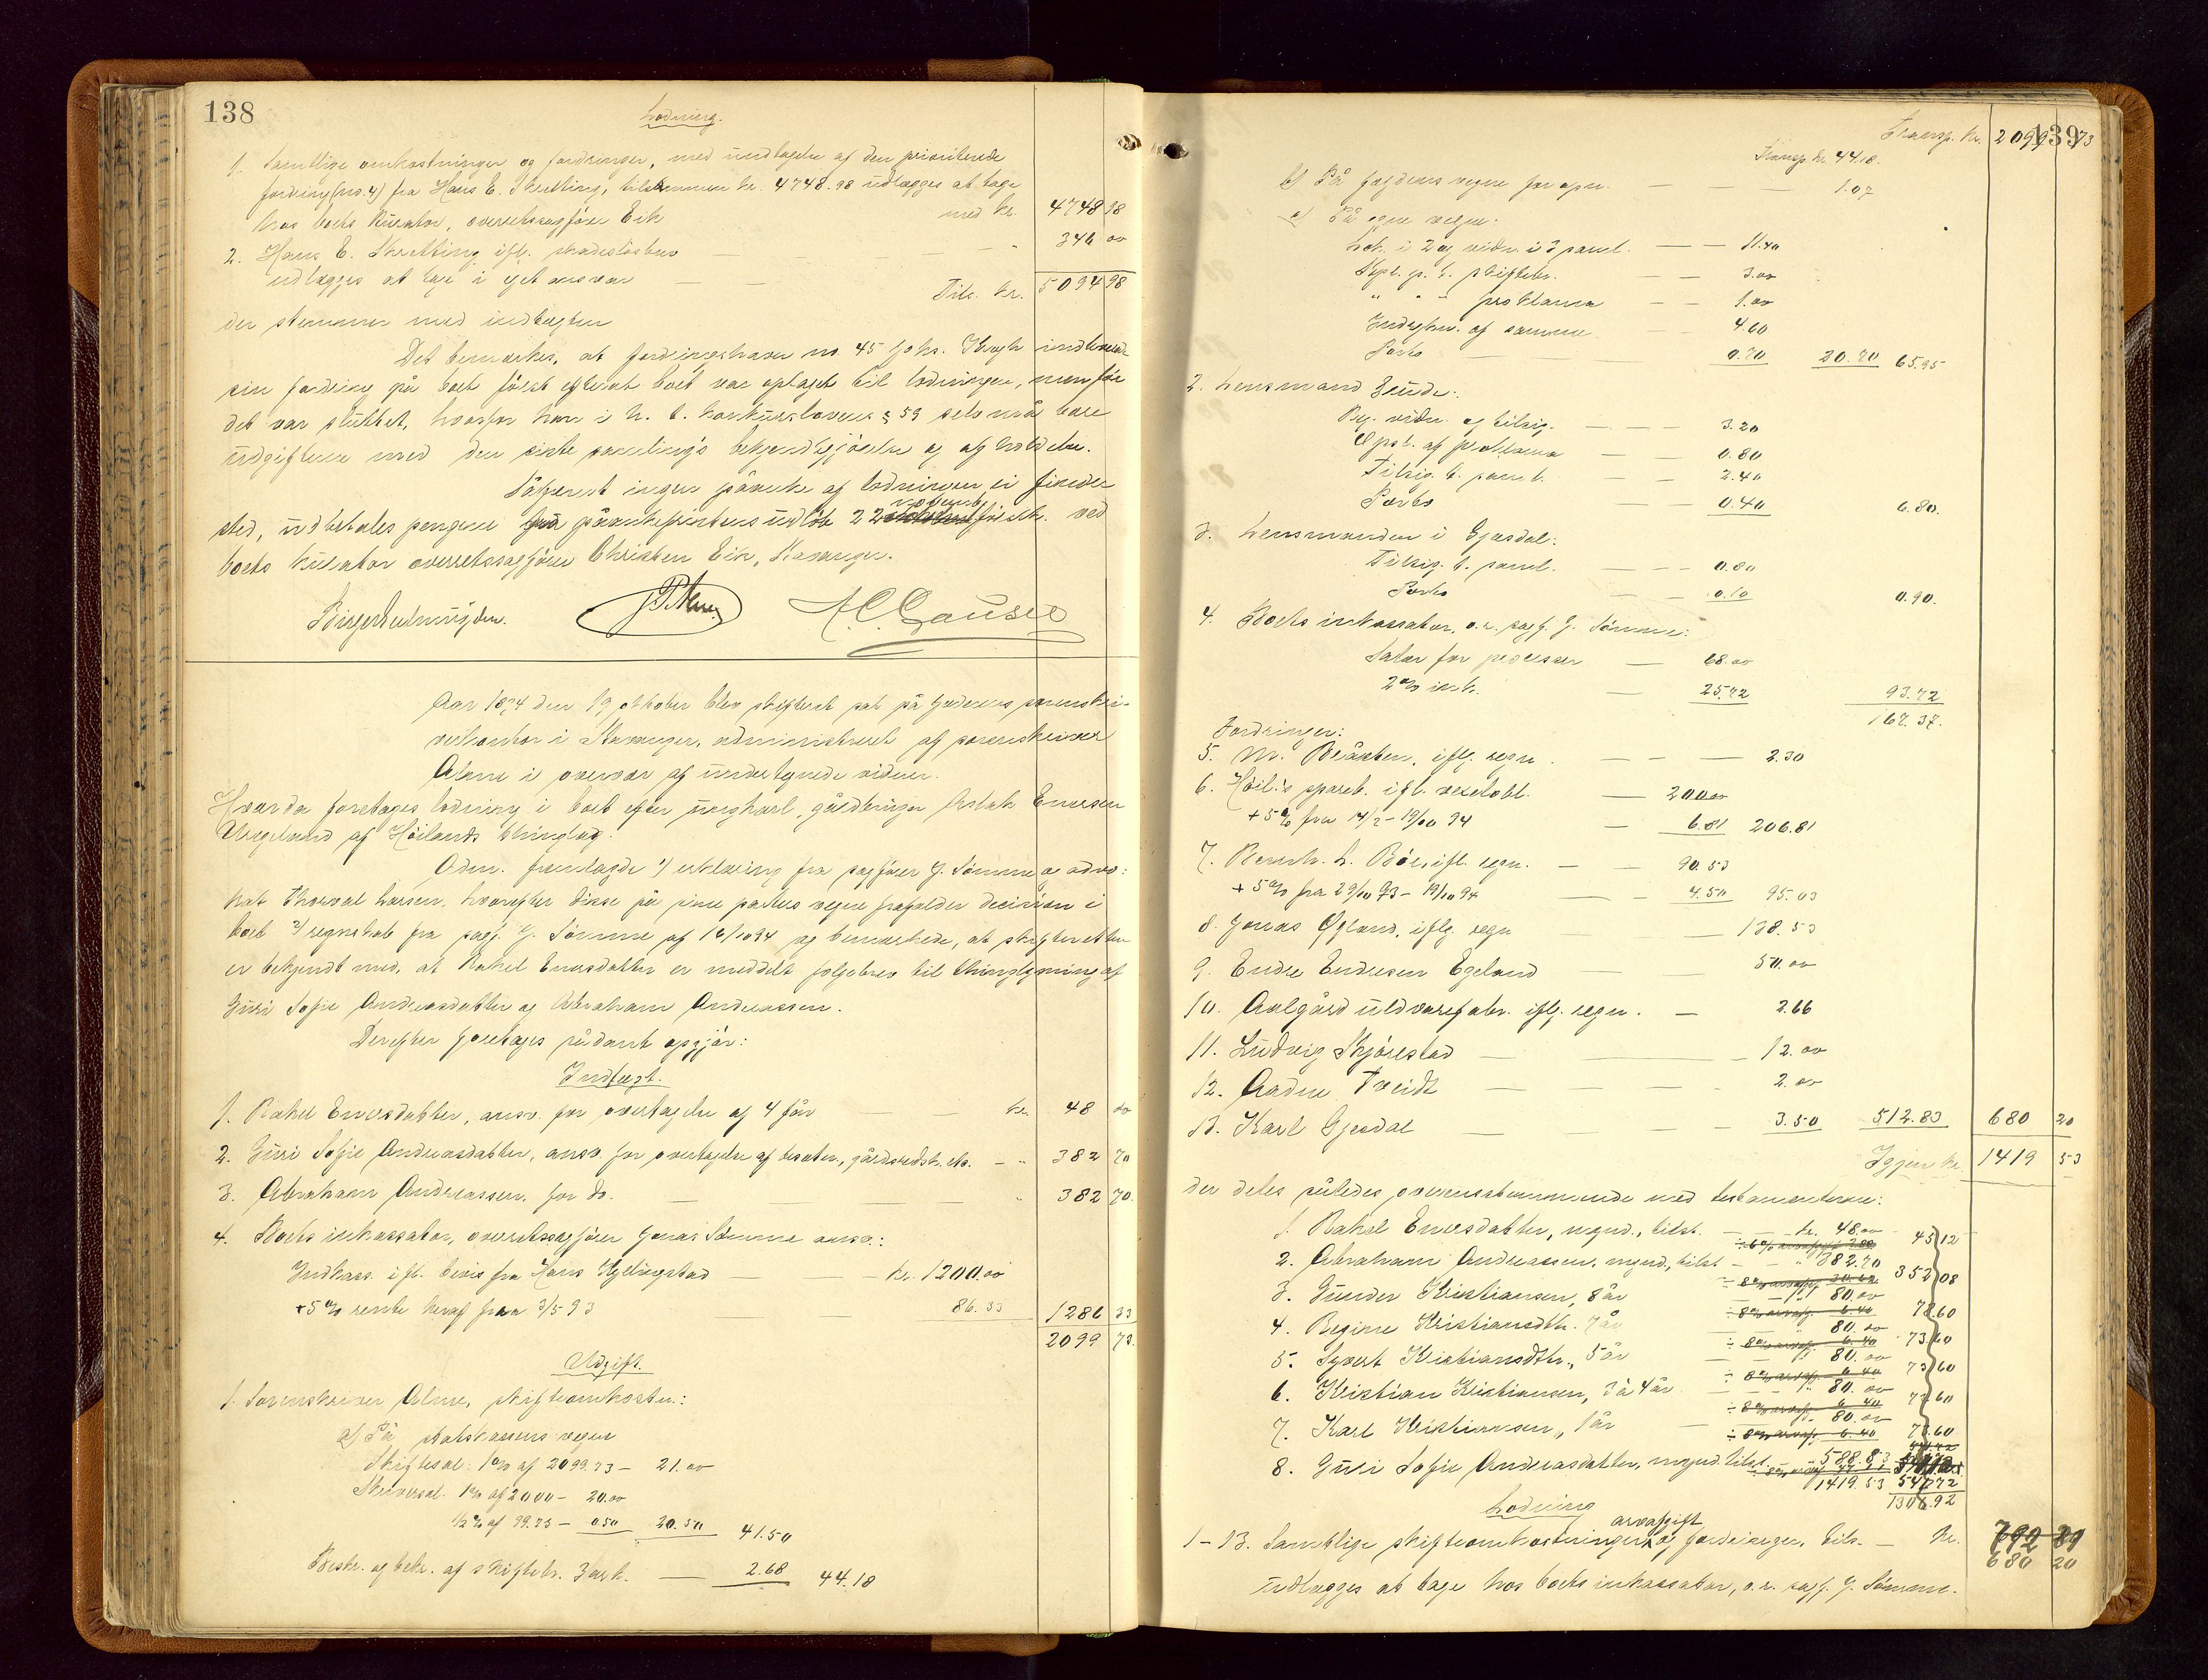 138
Lodning.
1. Samtlige omkostninger og fordringer, med undtagelse af den prioriterede
fordring (no. 4) fra Hans E. Skretting, tilsammen kr. 4748.98 udlægges at tage
hos boets kurator, overretssagfører Eik med kr. 4748 98
2. Hans E. Skretting ifl. skadesløsbrev — — " 346 00
udlægges at tage i eget ansvar
Tils. kr. 5094 98
der stemmer med indtægten
Det bemærkes, at fordringshaver no. 45 Johs. Krogh indleverede
sin fordring på boet først efterat boet var optaget til lodningen, men før
det var sluttet, hvorfor han i h. t. konkurslovens § 59 selv må bære
udgifterne med den sidste samlings bekjendtgjørelse og afholdelse.
Såfremt ingen påanke af lodningen ei finder
sted, udbetales pengene fra påankefristens udløb 22 november førstk. ved
boets kurator overretssagfører Christen Eik, Stavanger.
Aar 1894 den 19 oktober blev skifteret sat på Jæderens sorenskri-
verkontor i Stavanger, administreret af sorenskriver
Alme i overvær af undertegnede vidner.
Hvorda foretoges lodning i boet efter ungkarl, gårdbruger Aslak Enersen
Usegeland af Høilands thinglag.
Adm. fremlagde 1) erklæring fra sagfører J. Sømme og advo-
kat Thorval Larsen, hvorefter disse på sine parters vegne frafalder decision i
boet 2) regnskab fra sagf. J. Sømme af 16/10 94 og bemærkede, at skifteretten
er bekjendt med, at Rakel Enersdatter er meddelt følgebrev til thinglysning af
Guri Sofie Andreasdatter og Abraham Andreassen.
Derefter foretoges sådant opgjør:
Indtægt.
1. Rakel Enersdatter, ansv. for overtagelse af 4 får — — kr. 48 00
2. Guri Sofie Andreasdatter, ansv. for overtagelse af besætn., gårdsredsk. etc. — " 382 70
3. Abraham Andreassen, for do. — — " 382 70
4. Boets inkassator, overretssagfører Jonas Sømme ansv.:
Indkass. ifl. bevis fra Hans Kyllingstad — — kr. 1200.00
+ 5 % rente heraf fra 3/5 93 — 86.33 1286 33
2099 73
Udgift.
1. Sorenskriver Alme, skifteomkostn.:
a) På statskassens vegne
Skifteafg. 1 % af 2099.73 — 21.00
Skriversal. 1 % af 2000 — 20.00
1/2 % af 99.73 — 0.50 20.50 41.50
Beskr. og bekr. af skiftebr. 3 ark. — 2.68 44.18
139
Transp. kr. 2099 73
Transp. kr. 44.18.
b) På fogdens vegne for opn. — — — 1.07
c) På egne vegne.
Lok. i 2 og vidn. i 3 saml. — — 11.40
Kgl. p. t. skiftebr. — — 3.00
" " " proklama — — 1.00
Indrykn. af samme — 4.60
Porto — 0.70 20.70 65.95
2. Lensmand Grude:
Reg. vidn. og tilsig. — — — 3.20
Opsl. af proklama — — 0.80
Tilsig. t. saml. — — 2.40
Porto — 0.40 6.80.
3. Lensmanden i Gjesdal:
Tilsig. t. saml. — — — 0.80
Porto — — 0.10 0.90.
4. Boets inkassator, o.r. sagf. J. Sømme:
Salær for processer — 68.00
2 % ink. — 25.72 93.72
167.37.
Fordringer:
5. M. Bråsten, iflg. regn. — — — 2.30
6. Høil.s spareb. ifl. vexelobl. — 200.00
+ 5 % fra 14/2 – 19/10 94 — 6.81 206.81
7. Bernh. L. Böe, ifl. regn. — — 90.53
+ 5 % fra 29/10 93 – 19/10 94 — — 4.50 95.03
8. Jonas Øgland, iflg. regn — — 138.53
9. Endre Endresen Egeland — — 50.00
10. Aalgård uldvarefabr. iflg. regn. — 2.66
11. Ludvig Skjørestad — — 12.00
12. Aadne Tveidt — — — 2.00
13. Karl Gjesdal — — — 3.50 512.83 680 20
Igjen kr. 1419 53
der deles således overensstemmende med testamenterne:
1. Rakel Enersdatter, mynd., tilst. — kr. 48.00
÷ 6 % arveafgift 2.88 45 12
2. Abraham Andreassen, mynd., tilst — — " 382.70
÷ 8 % arveafg. 30.62 352 08
3. Gunder Kristiansen, 8 år — " 80.00
÷ 8 % arveafg. 6.40 73.60
4. Regine Kristiansdtr. 7 år — " 80.00
÷ 8 % arveafg. 6.40 73.60
5. Syvert Kristiansdtr., 5 år — " 80.00
÷ 8 % arveafg. 6.40 73 60
6. Kristian Kristiansen, 3 à 4 år — — " 80.00
÷ 8 % arveafg. 6.40 73 60
7. Karl Kristiansen, 1 år — " 80.00
÷ 8 % arveafg. 6.40 73.60
8. Guri Sofie Andreasdatter, mynd. tilst. " 588.83
1419.53 541 72
1306.92
Lodning
1–13. Samtlige skifteomkostninger, arveafgift og fordringer, tils. — kr. 792 81
680 20
udlægges at tage hos boets inkassator, o.r. sagf. J. Sømme.